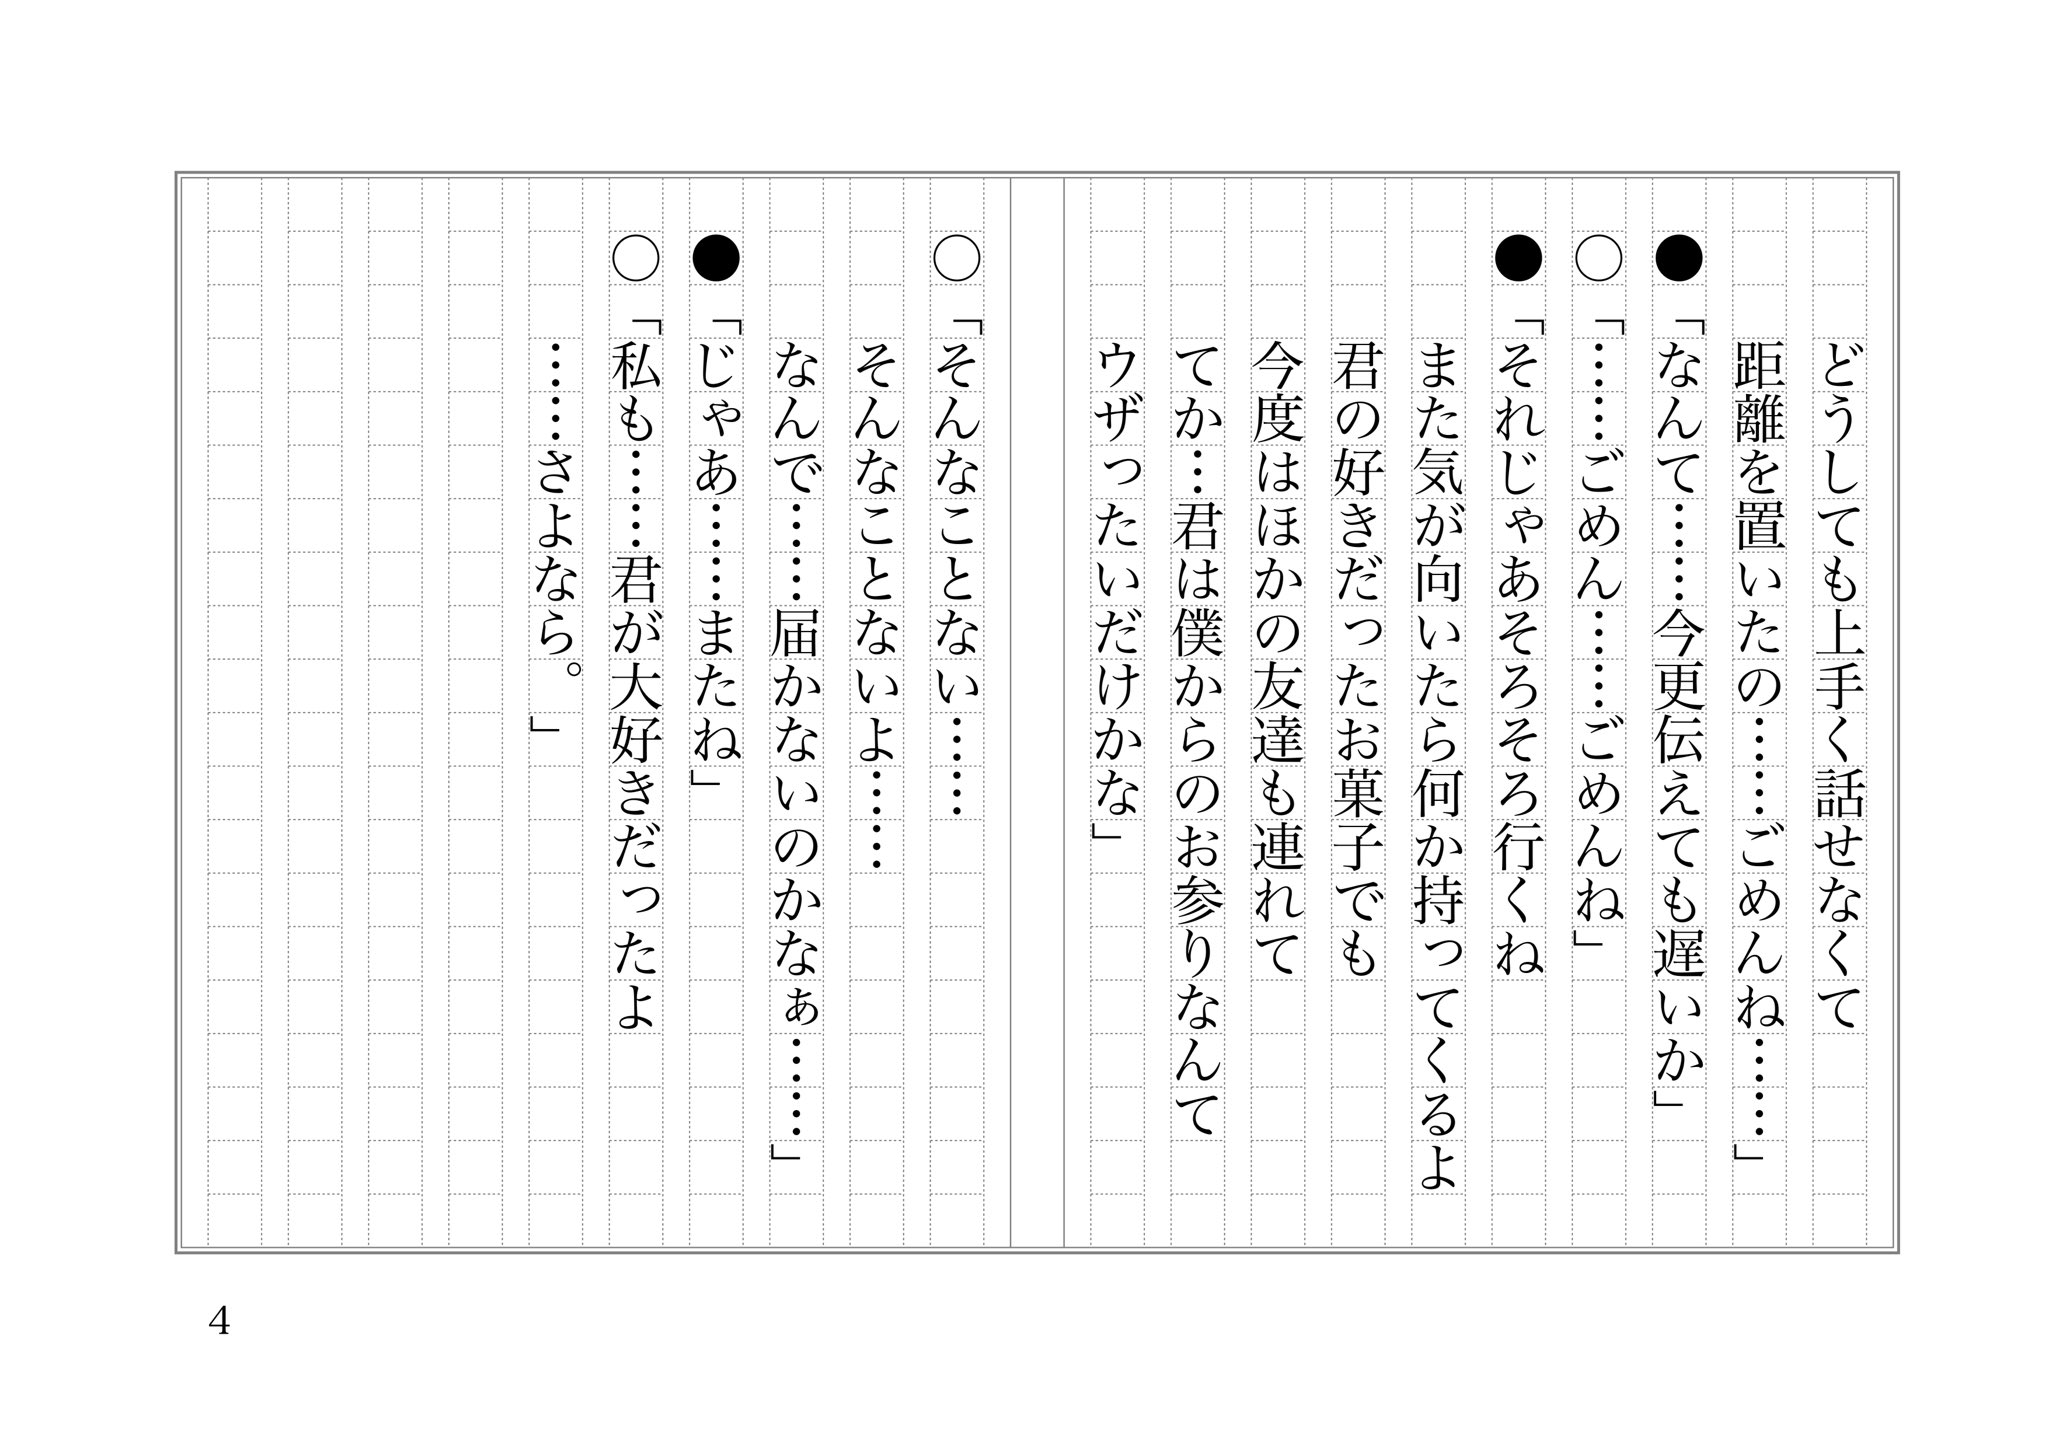 どうしても上手く話せなくて
距離を置いたの……ごめんね……」
●「なんて……今更伝えても遅いか」
○「……ごめん……ごめんね」
●「それじゃあそろそろ行くね
また気が向いたら何か持ってくるよ
君の好きだったお菓子でも
今度はほかの友達も連れて
てか…君は僕からのお参りなんて
ウザったいだけかな」
○「そんなことない……
そんなことないよ……
なんで……届かないのかなぁ……」
●「じゃあ……またね」
○「私も……君が大好きだったよ
……さよなら。」
4